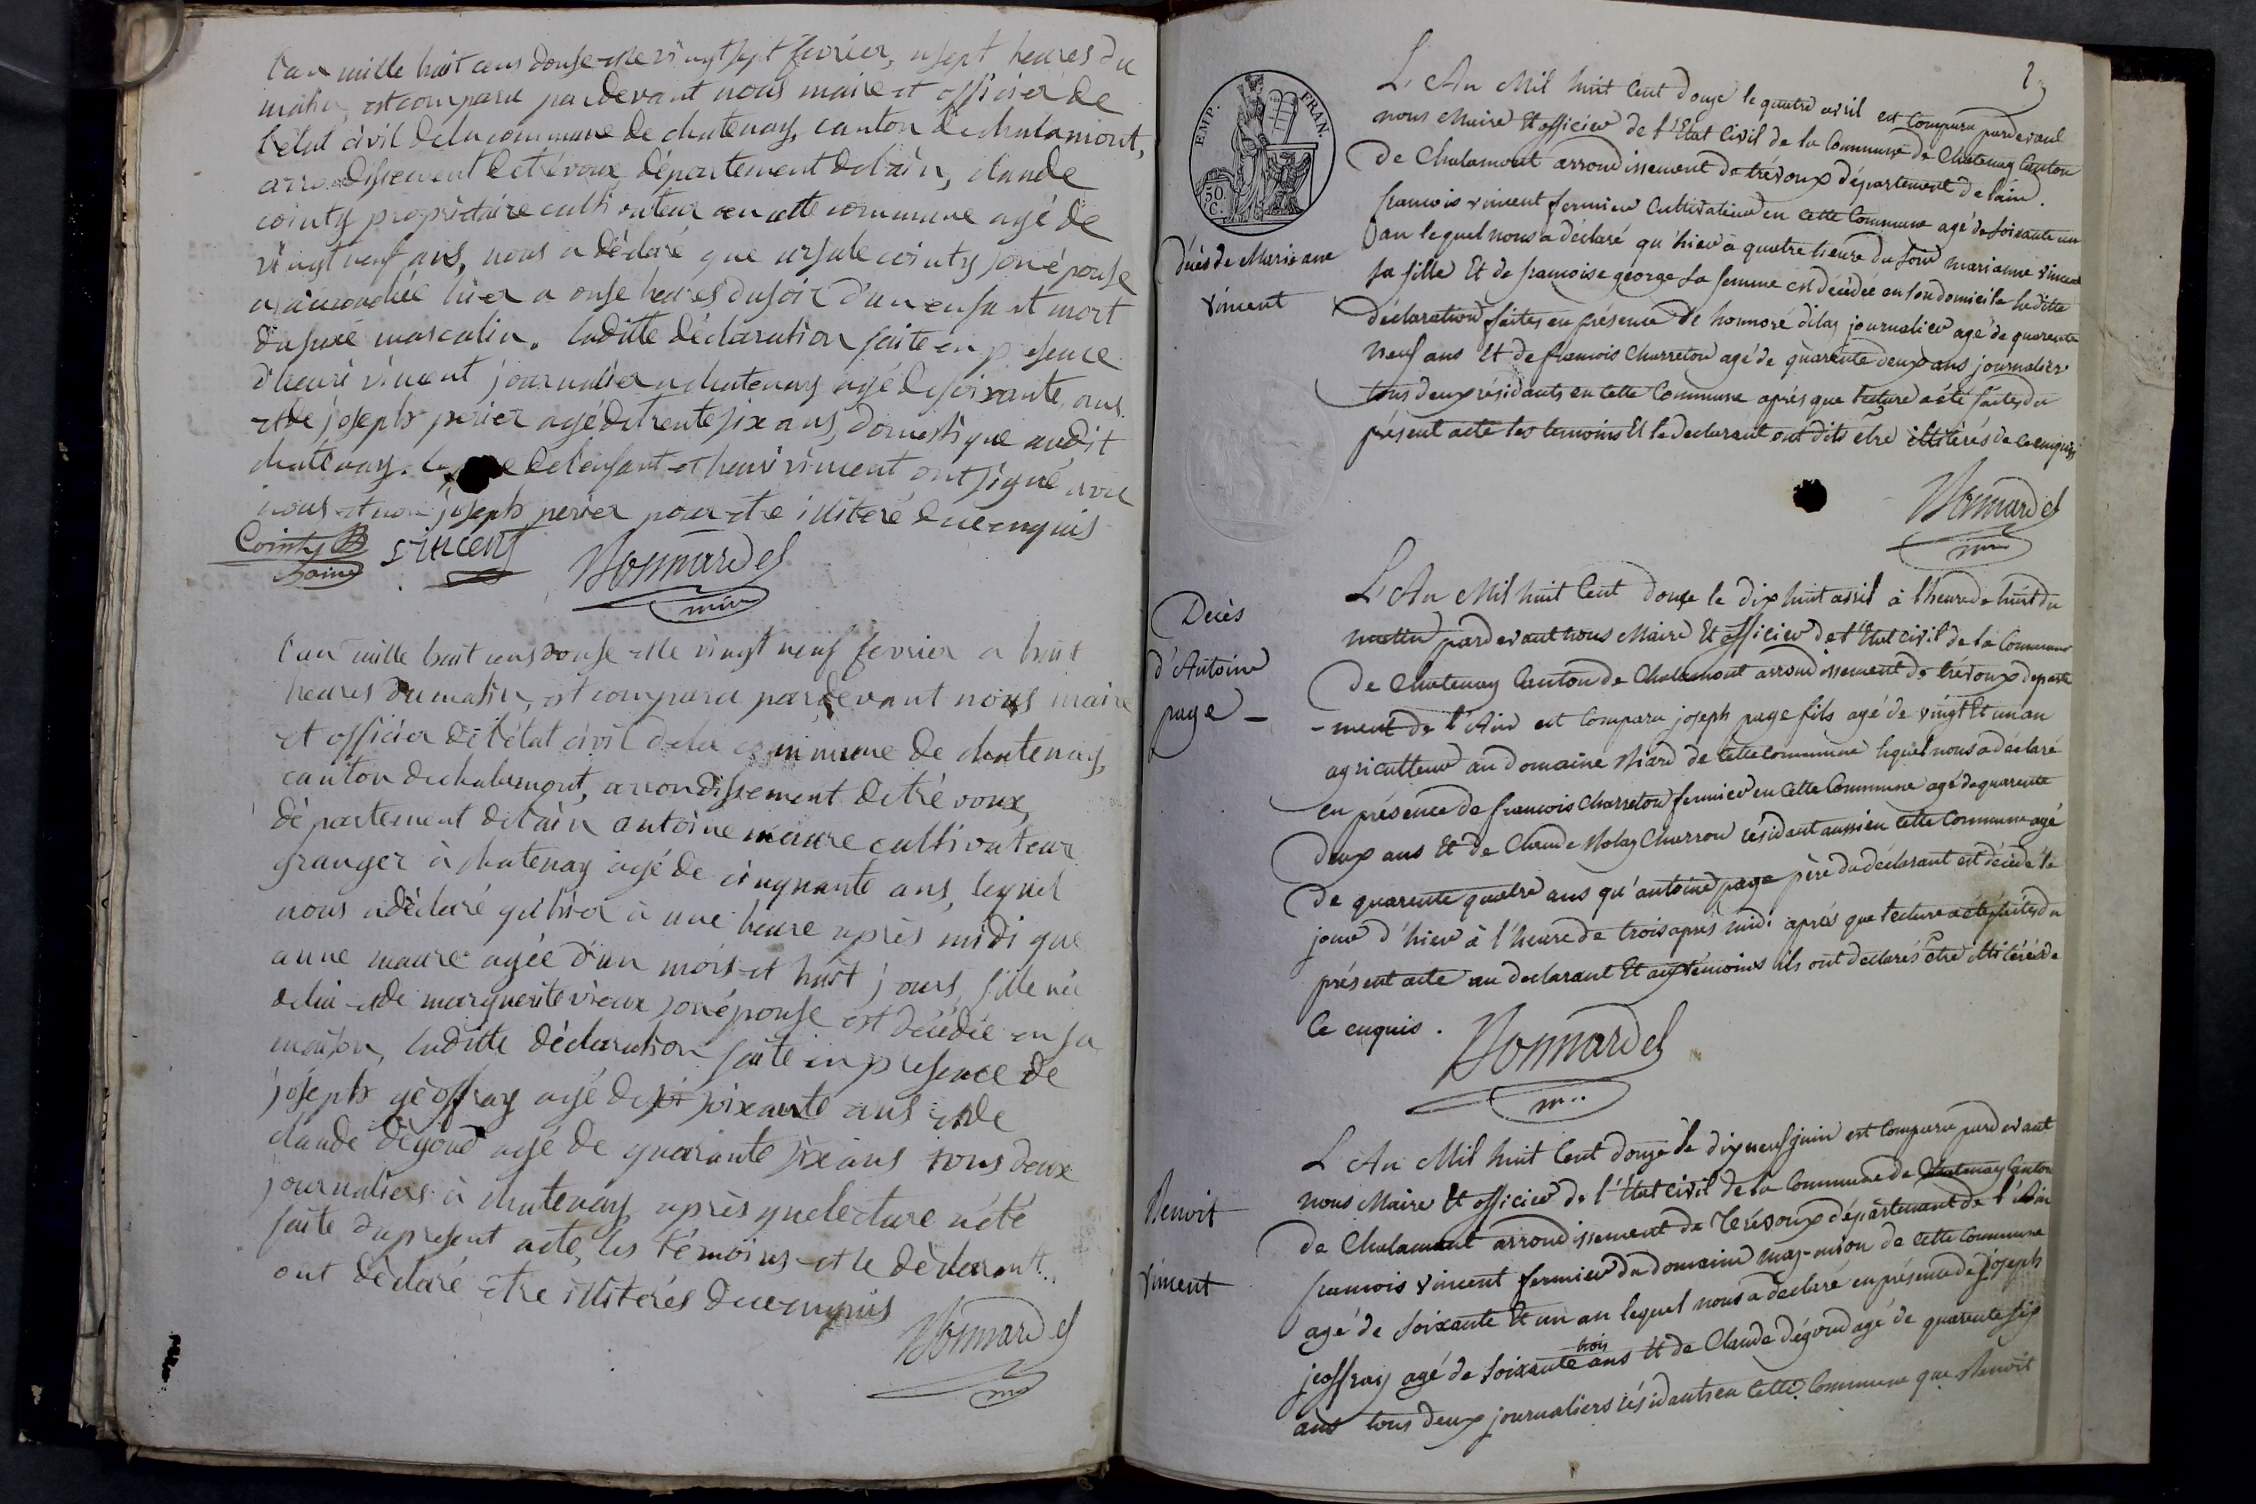 l'an mille huit cens douse et le vingt sept fevrier, a sept heures du
matin, est comparu pardevant nous maire et officier de
l'état civil de la commune de chatenay, canton de chalamont,
arrondissement de trévoux, département de l'ain, claude
cointy propriétaire cultivateur en cette commune agé de
vingt neuf ans, nous a déclaré que ursule cointy son épouse
a accouchée hier a onse heures du soir d'un enfant mort
du sexe masculin. laditte déclaration faite en presence
d'henri vincent journalier a chatenay agé de soixante ans
et de joseph perier agé de trente six ans, domestique audit
chatenay. le de l'enfant et henri vincent ont signé avec
nous et non joseph perier pour etre illiteré de ce enquis
Cointy
vincent
Bonnardel
l'an mille huit cens douse et le vingt neuf fevrier a huit
heures du matin, est comparu pardevant nous maire
et officier de l'état civil de la commune de chatenay,
canton de chalamont, arrondissement de trévoux,
département de l'ain antoine maure cultivateur
granger à chatenay agé de cinquante ans, lequel
nous a déclaré qu'hier à une heure après midi que
anne maure agée d'un mois et huit jours, fille née
de lui et de marguerite vieux son épouse est décédée en sa
maison, laditte déclaration faite en presence de
joseph géoffray agé de soixante ans et de
claude dégoud agé de quarante six ans tous deux
journaliers à chatenay, après que lecture a été
faite du present acte, les témoins et le déclarant
ont déclaré etre illiterés de ce enquis
Bonnardel
2
EMP. FRAN.
50 C.
L'An Mil huit Cent douze le quatre avril est Comparu pardevant
nous Maire Et officier de l'Etat Civil de la Commune de Chatenay Canton
de Chalamont arrondissement de trévoux département de l'ain.
francois vincent fermier Cultivateur en Cette Commune agé de Soixante un
an lequel nous a déclaré qu'hier à quatre heure du Soir marianne vincent
décès de Marieane
vincent
sa fille Et de francoise george sa femme est décédée en son domicile laditte
déclaration faites en présence de honnoré dilas journalier agé de quarente
neuf ans Et de francois Charreton agé de quarente deux ans journalier
tous deux résidants en Cette Commune aprés que lecture a été faites du
présent acte les temoins Et le declarant ont dits etre illitérés de ce enquis
Bonnardel
L'An Mil huit Cent douze le dix huit avril à l'heure de huit du
matin pardevant nous Maire Et officier de l'Etat civil de la Commune
Décès
d'Antoine
page
de Chatenay Canton de Chalamont arrondissement de trévoux departe
-ment de l'Ain est Comparu joseph page fils agé de vingt Et un an
agriculteur au Domaine Miard de Cette Commune lequel nous a déclaré
en présence de francois Charreton fermier en Cette Commune agé de quarente
deux ans Et de Claude Molas Charron résidant aussi en Cette Commune agé
de quarente quatre ans qu'antoine page père du déclarant est décédé le
jour d'hier à l'heure de trois aprés midi aprés que lecture a été faites du
présent acte au declarant Et aux témoins ils ont declarés être illitérés de
Ce enquis.
Bonnardel
L'An Mil huit Cent douze le dix neuf juin est Comparu pardevant
nous Maire Et officier de l'Etat civil de la Commune de Chatenay Canton
de Chalamont arrondissement de Trévoux département de l'Ain
Benoit
vincent
francois vincent fermier du domaine mas-mion de Cette Commune
agé de Soixante Et un an lequel nous a declaré en présence de joseph
jeoffray agé de Soixante trois ans Et de Claude dégoud agé de quarente six
ans tous deux journaliers résidants en Cette Commune que Benoit